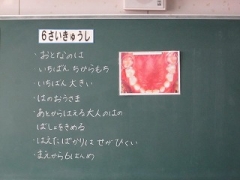 6さいきゅうし
・おとなのは
いちばん ちからもち
いちばん 大きい
・はのおうさま
・あとからはえる大人のはの
ばしょをきめる
・はえたばかりは せがひくい
・まえから6ばんめ